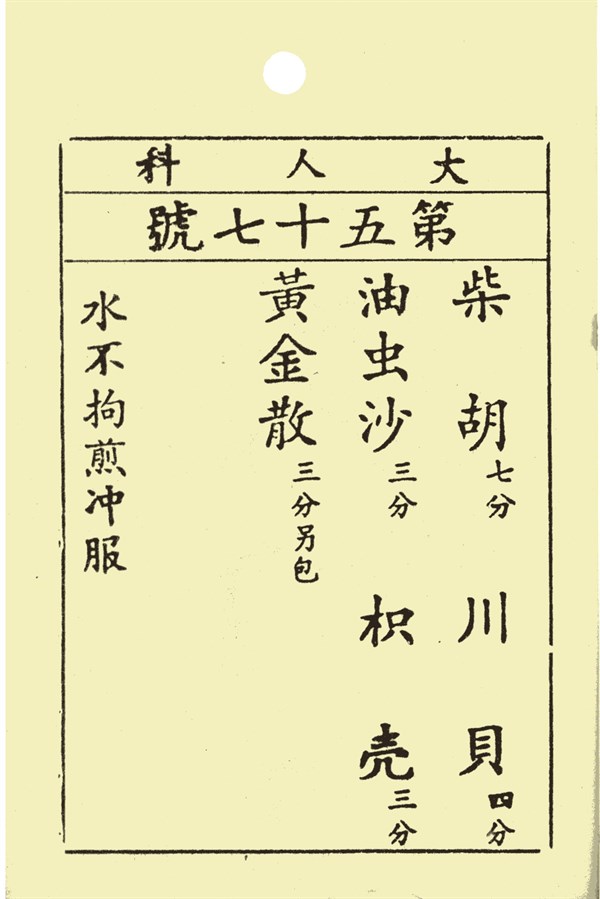 大人科
第五十七號
柴胡七分 川貝四分
油虫沙三分 枳壳三分
黃金散三分另包
水不拘煎冲服